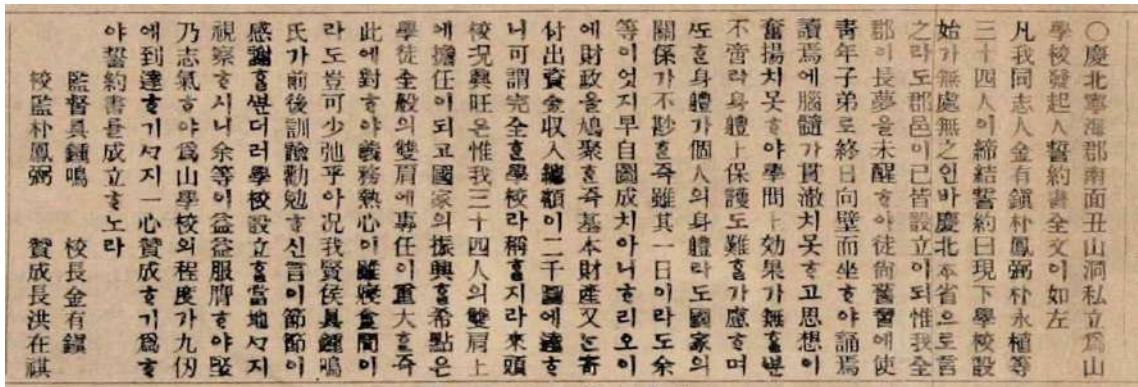 〇慶北寧海郡南面丑山洞私立爲山
學校發起人誓約書全文이如左
凡我同志人金有鎭朴鳳弼朴永植等
三十四人이締結誓約曰現下學校設
始가無處無之인바慶北本省으로言
之라도郡邑이已皆設立이되惟我全
郡이長夢을未醒ᄒᆞ야徒尙舊習에使
靑年子弟로終日向壁而坐ᄒᆞ야誦焉
讀焉에腦髓가貫澈치못ᄒᆞ고思想이
奮揚치못ᄒᆞ야學問上效果가無ᄒᆞᆯᄲᅮᆫ
不啻라身體上保護도難ᄒᆞᆯ가慮ᄒᆞ며
ᄯᅩᄒᆞᆫ身體가個人의身體라도國家의
關係가不尠ᄒᆞᆫ즉雖其一日이라도余
等이엇지早自圖成치아니ᄒᆞ리오이
에財政을鳩聚ᄒᆞᆫ즉基本財產又ᄂᆞᆫ寄
付出資金収入總額이二千圜에達ᄒᆞ
니可謂完全ᄒᆞᆫ學校라稱ᄒᆞᆯ지라來頭
校況興旺은惟我三十四人의雙肩上
에擔任이되고國家의振興ᄒᆞᆯ希點은
學徒全般의雙肩에專任이重大ᄒᆞᆫ즉
此에對ᄒᆞ야義務熱心이雖寢食間이
라도豈可少弛乎아况我賢侯具鍾鳴
氏가前後訓諭勸勉ᄒᆞ신言이節節이
感謝ᄒᆞᆯᄲᅮᆫ더러學校設立ᄒᆞᆯ當地ᄭᆞ지
視察ᄒᆞ시니余等이益益服膺ᄒᆞ야堅
乃志氣ᄒᆞ야爲山學校의程度가九仞
에到達ᄒᆞ기ᄭᆞ지一心贊成ᄒᆞ기爲ᄒᆞ
야誓約書를成立ᄒᆞ노라
監督具鍾鳴 校長金有鎭
校監朴鳳弼 贊成長洪在祺